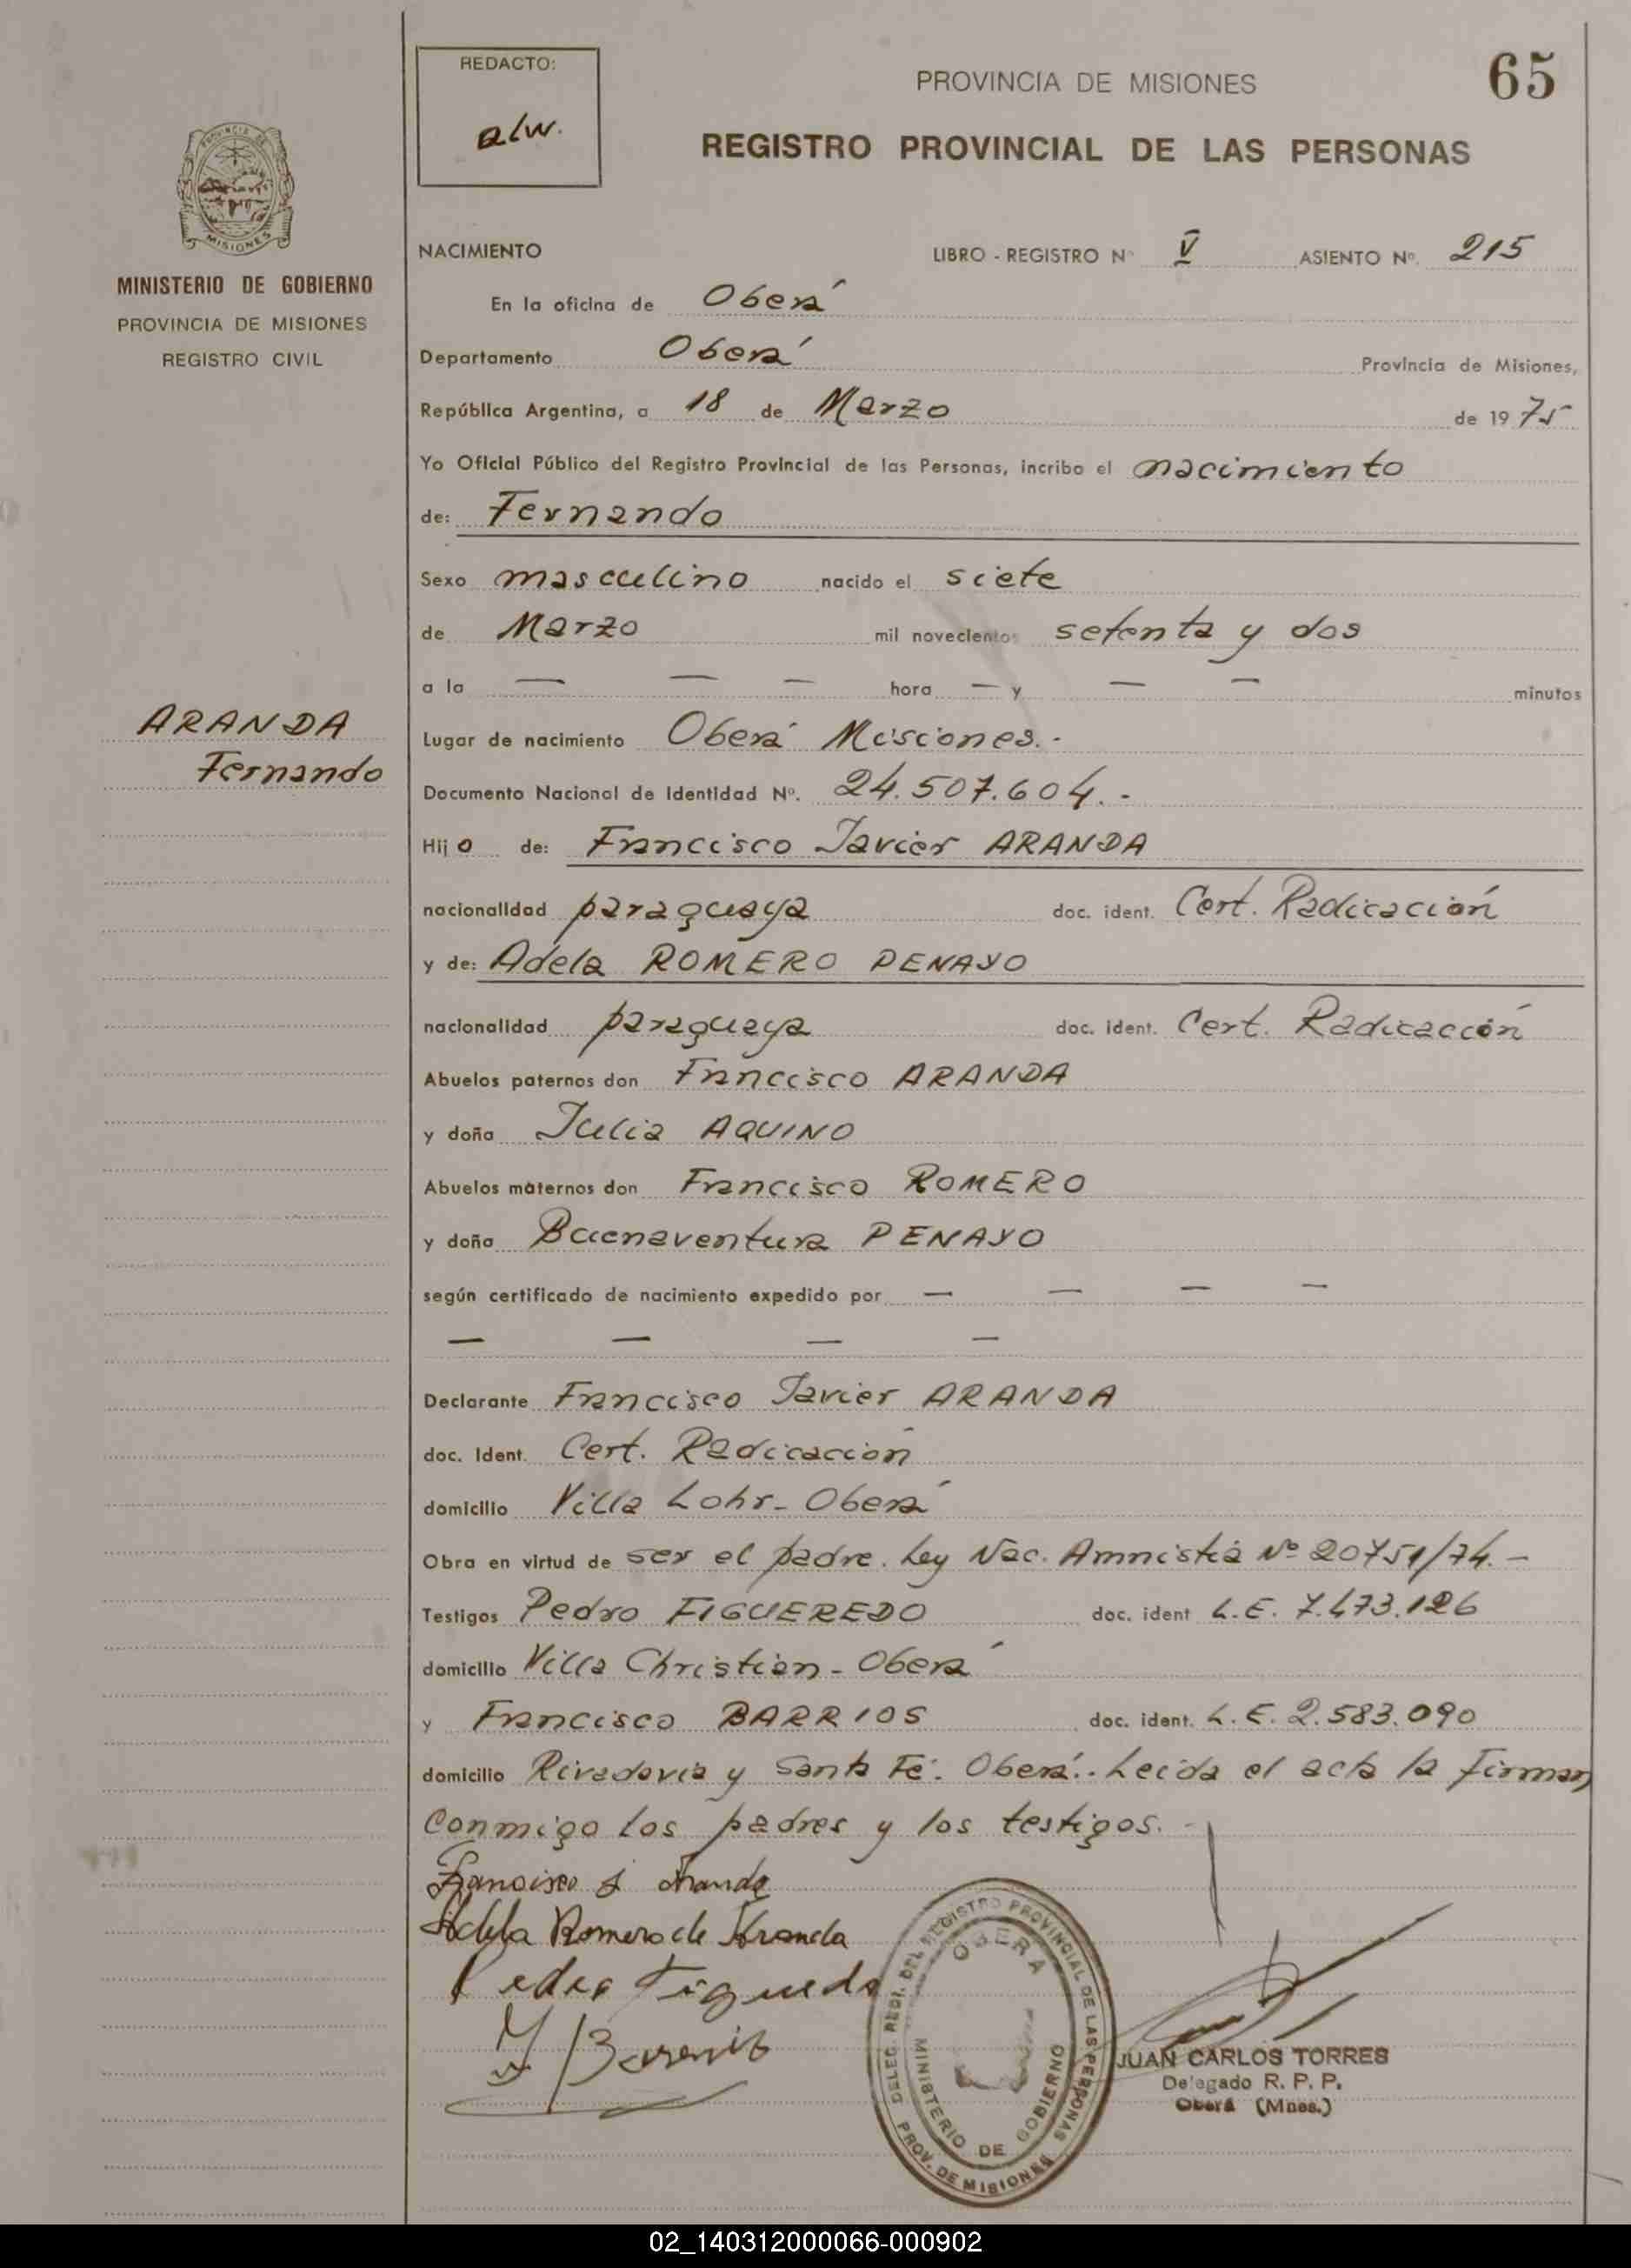 REDACTO:
alw.
PROVINCIA DE MISIONES
65
REGISTRO PROVINCIAL DE LAS PERSONAS
PROVINCIA DE
MISIONES
MINISTERIO DE GOBIERNO
PROVINCIA DE MISIONES
REGISTRO CIVIL
NACIMIENTO LIBRO - REGISTRO Nº V ASIENTO Nº. 215
En la oficina de Oberá
Departamento Oberá Provincia de Misiones,
República Argentina, a 18 de Marzo de 1975
Yo Oficial Público del Registro Provincial de las Personas, incribo el nacimiento
de: Fernando
Sexo masculino nacido el siete
de Marzo mil novecientos setenta y dos
a la — — — hora — y — — minutos
ARANDA
Fernando
Lugar de nacimiento Oberá Misiones.-
Documento Nacional de Identidad Nº. 24.507.604.-
Hijo de: Francisco Javier ARANDA
nacionalidad paraguaya doc. ident. Cert. Radicación
y de: Adela ROMERO PENAYO
nacionalidad paraguaya doc. ident. Cert. Radicación
Abuelos paternos don Francisco ARANDA
y doña Julia AQUINO
Abuelos maternos don Francisco ROMERO
y doña Buenaventura PENAYO
según certificado de nacimiento expedido por — — — —
— — — —
Declarante Francisco Javier ARANDA
doc. Ident. Cert. Radicación
domicilio Villa Lohr - Oberá
Obra en virtud de ser el padre. Ley Nac. Amnistía Nº 20751/74.-
Testigos Pedro FIGUEREDO doc. ident L.E. 7.473.126
domicilio Villa Christian - Oberá
y Francisco BARRIOS doc. ident. L.E. 2.583.090
domicilio Rivadavia y Santa Fé. Oberá.. Leida el acta la firman
conmigo los padres y los testigos.-
Francisco J Aranda
Adela Romero de Aranda
Pedro Figueredo
DELEG. REGI. DEL REGISTRO PROVINCIAL DE LAS PERSONAS
OBERA
MINISTERIO DE GOBIERNO
PROV. DE MISIONES
JUAN CARLOS TORRES
Delegado R. P. P.
Oberá (Mnes.)
02_140312000066-000902